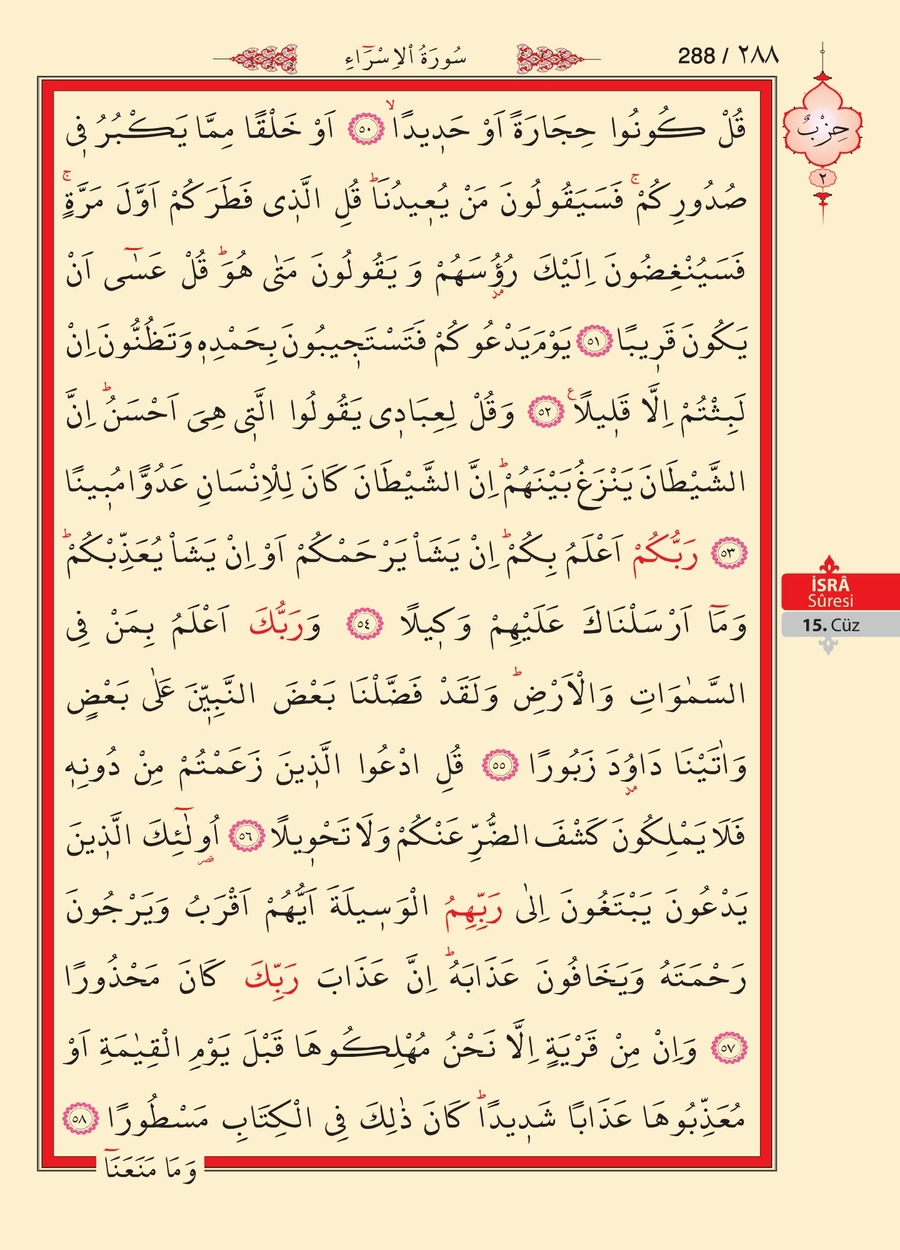 سُورَةُ الْاِسْرَٓاءِ
288 / ٢٨٨
حِزْبٌ
٢
قُلْ كُونُوا حِجَارَةً اَوْ حَد۪يدًاۙ ﴿٥٠﴾ اَوْ خَلْقًا مِمَّا يَكْبُرُ ف۪ي
صُدُورِكُمْۚ فَسَيَقُولُونَ مَنْ يُع۪يدُنَاۜ قُلِ الَّذ۪ي فَطَرَكُمْ اَوَّلَ مَرَّةٍۚ
فَسَيُنْغِضُونَ اِلَيْكَ رُؤُ۫سَهُمْ وَيَقُولُونَ مَتٰى هُوَۜ قُلْ عَسٰٓى اَنْ
يَكُونَ قَر۪يبًا ﴿٥١﴾ يَوْمَ يَدْعُوكُمْ فَتَسْتَج۪يبُونَ بِحَمْدِه۪ وَتَظُنُّونَ اِنْ
لَبِثْتُمْ اِلَّا قَل۪يلًا۟ ﴿٥٢﴾ وَقُلْ لِعِبَاد۪ي يَقُولُوا الَّت۪ي هِيَ اَحْسَنُۜ اِنَّ
الشَّيْطَانَ يَنْزَغُ بَيْنَهُمْۜ اِنَّ الشَّيْطَانَ كَانَ لِلْاِنْسَانِ عَدُوًّا مُب۪ينًا
﴿٥٣﴾ رَبُّكُمْ اَعْلَمُ بِكُمْۜ اِنْ يَشَأْ يَرْحَمْكُمْ اَوْ اِنْ يَشَأْ يُعَذِّبْكُمْۜ
وَمَٓا اَرْسَلْنَاكَ عَلَيْهِمْ وَك۪يلًا ﴿٥٤﴾ وَرَبُّكَ اَعْلَمُ بِمَنْ فِي
السَّمٰوَاتِ وَالْاَرْضِۜ وَلَقَدْ فَضَّلْنَا بَعْضَ النَّبِيّ۪نَ عَلٰى بَعْضٍ
وَاٰتَيْنَا دَاوُ۫دَ زَبُورًا ﴿٥٥﴾ قُلِ ادْعُوا الَّذ۪ينَ زَعَمْتُمْ مِنْ دُونِه۪
فَلَا يَمْلِكُونَ كَشْفَ الضُّرِّ عَنْكُمْ وَلَا تَحْو۪يلًا ﴿٥٦﴾ اُو۬لٰٓئِكَ الَّذ۪ينَ
يَدْعُونَ يَبْتَغُونَ اِلٰى رَبِّهِمُ الْوَس۪يلَةَ اَيُّهُمْ اَقْرَبُ وَيَرْجُونَ
رَحْمَتَهُ وَيَخَافُونَ عَذَابَهُۜ اِنَّ عَذَابَ رَبِّكَ كَانَ مَحْذُورًا
﴿٥٧﴾ وَاِنْ مِنْ قَرْيَةٍ اِلَّا نَحْنُ مُهْلِكُوهَا قَبْلَ يَوْمِ الْقِيٰمَةِ اَوْ
مُعَذِّبُوهَا عَذَابًا شَد۪يدًاۜ كَانَ ذٰلِكَ فِي الْكِتَابِ مَسْطُورًا ﴿٥٨﴾
وَمَا مَنَعَنَٓا
İSRÂ
Sûresi
15. Cüz